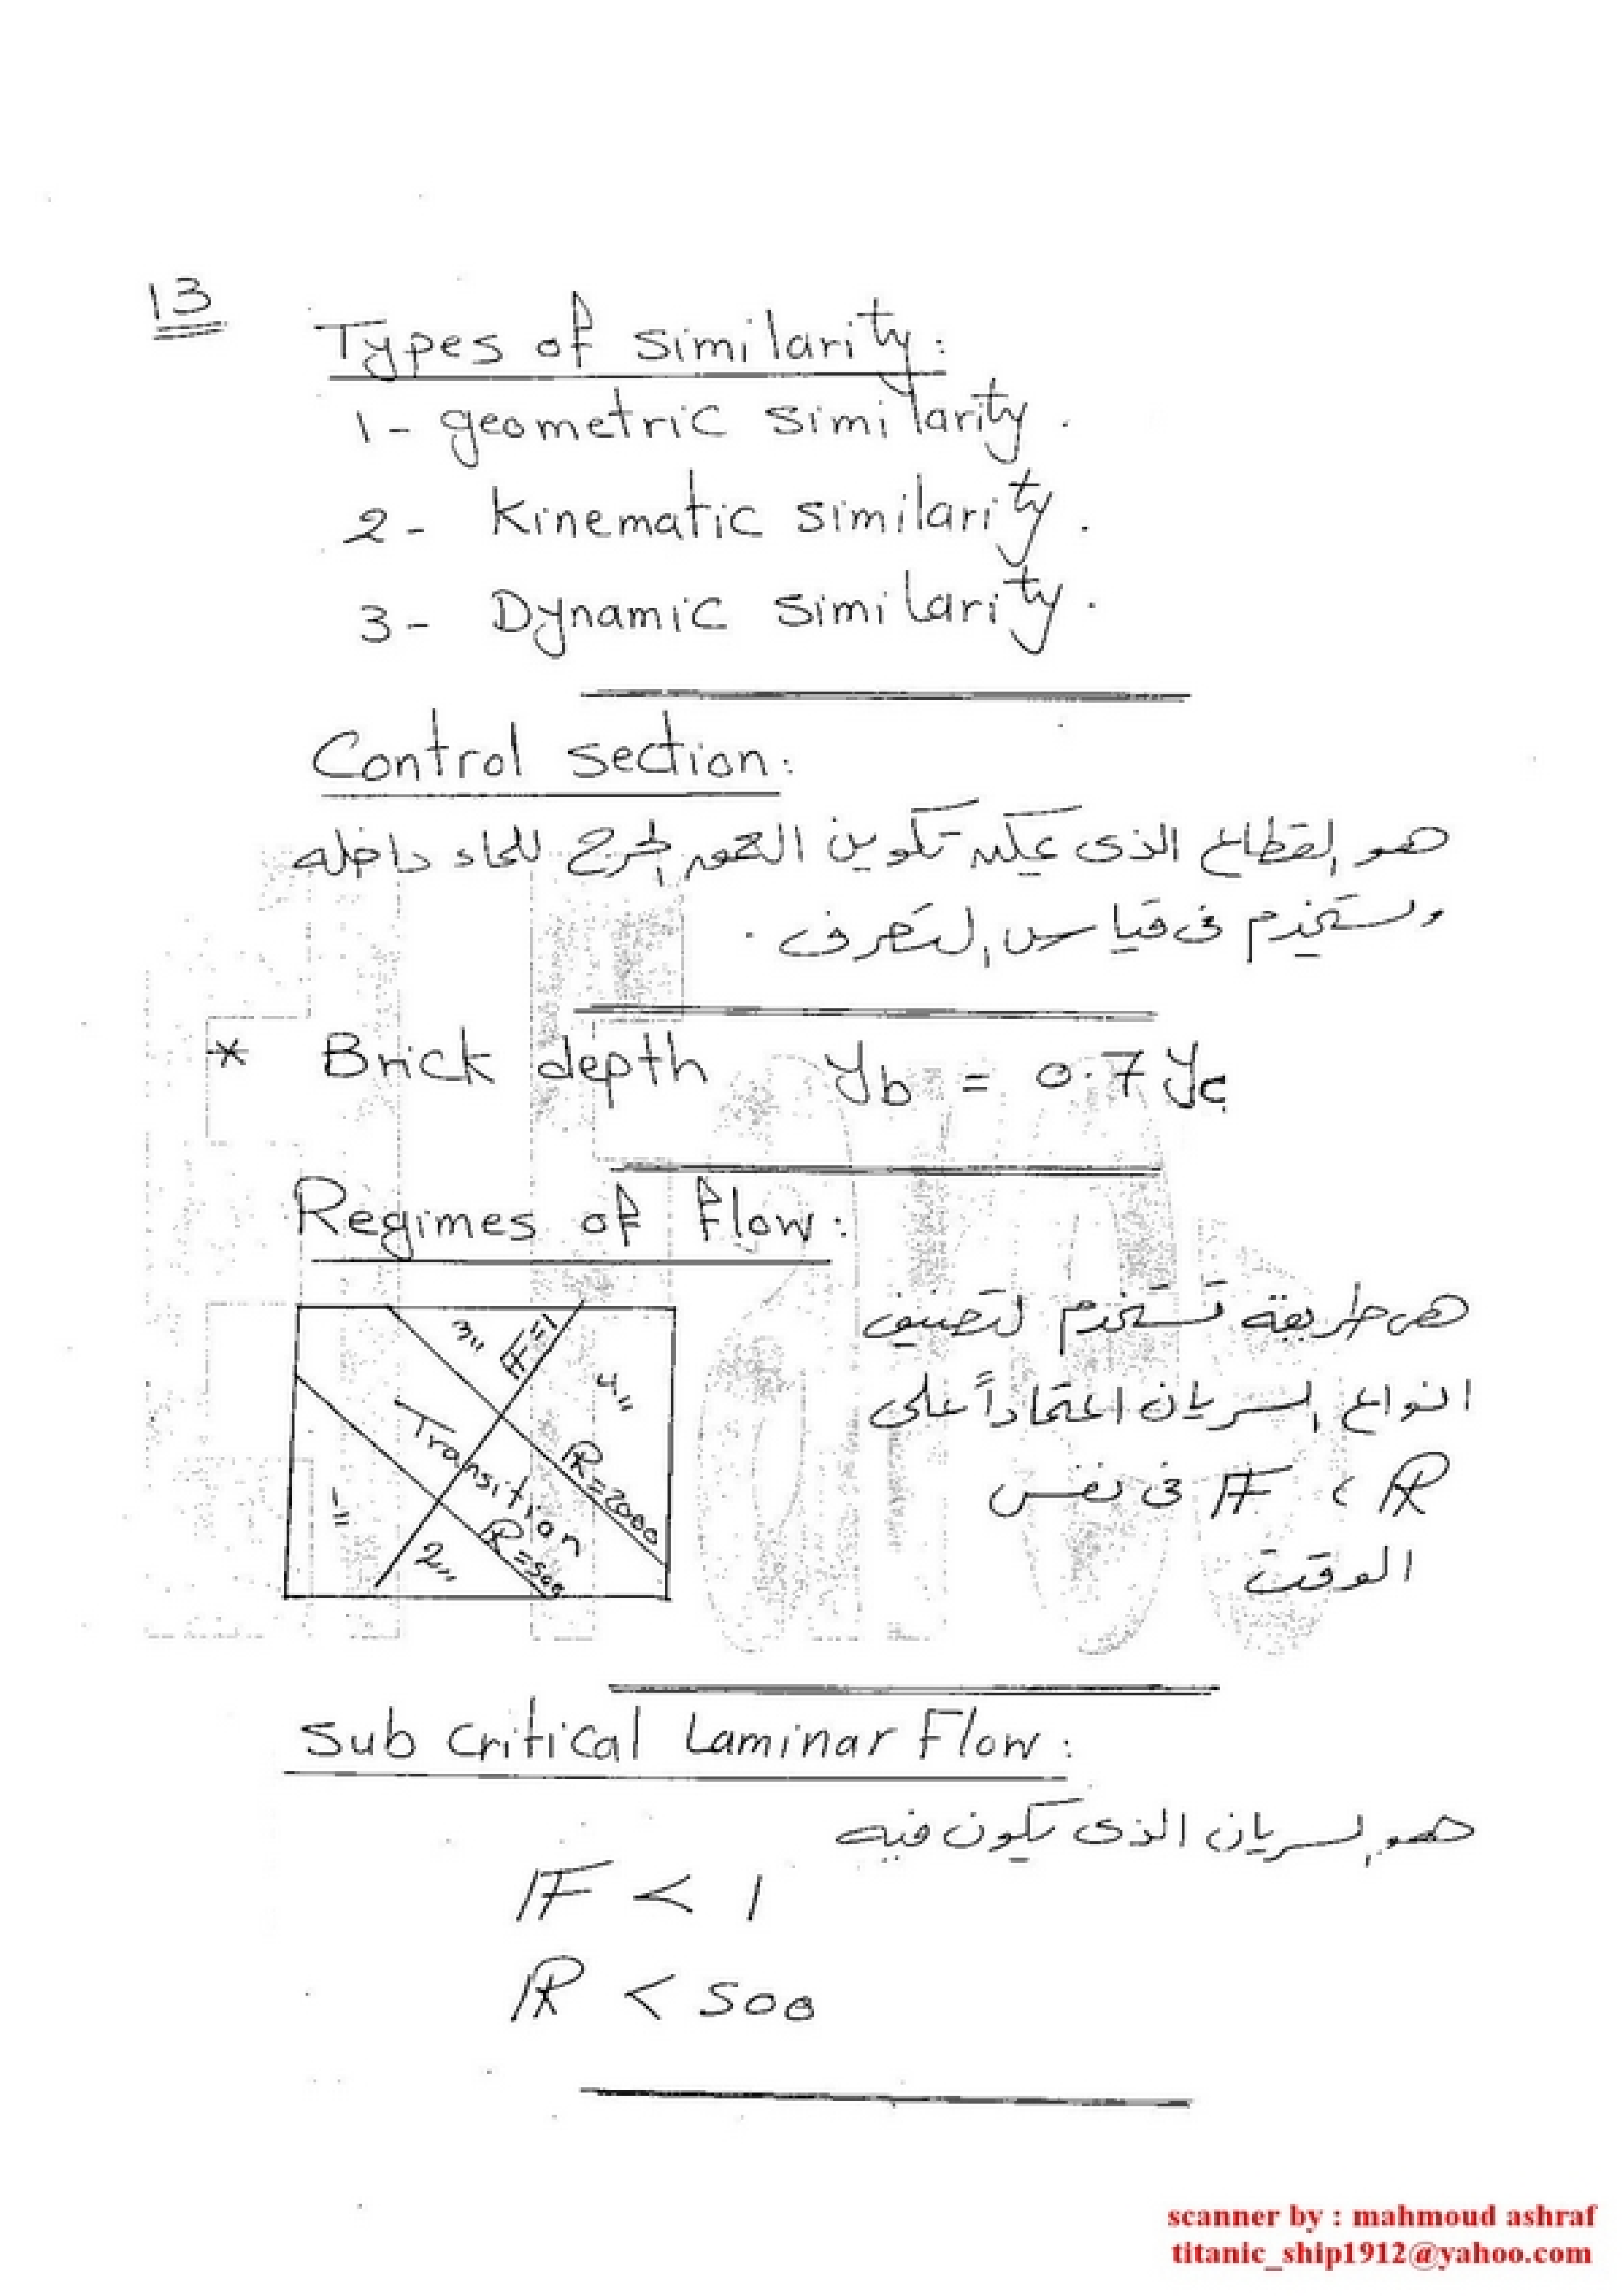 13
Types of similarity:
1- geometric similarity.
2- Kinematic similarity.
3- Dynamic similarity.
Control section:
هو القطاع الذى يمكنه تكوين العمق الحرج للماء داخله
ويستخدم فى قياس التصرف.
* Brick depth yb = 0.7 yc
Regimes of flow:
هى طريقة تستخدم لتصنيف
انواع السريان اعتماداً على
R ، F فى نفس
الوقت
3
F=1
4
Transition
R=2000
1
2
R=500
Sub critical Laminar Flow:
هو السريان الذى يكون فيه
F < 1
R < 500
scanner by : mahmoud ashraf
titanic_ship1912@yahoo.com